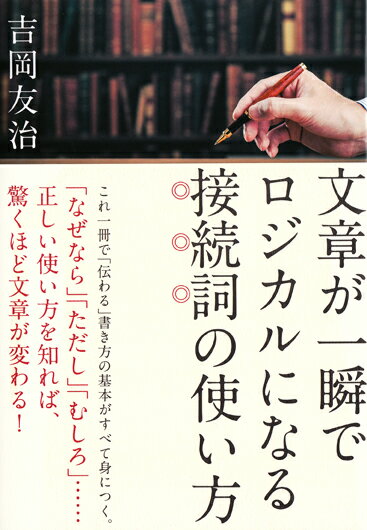 文章が一瞬で
ロジカルになる
接続詞の使い方
吉岡友治
これ一冊で「伝わる」書き方の基本がすべて身につく。
「なぜなら」「ただし」「むしろ」……
正しい使い方を知れば、
驚くほど文章が変わる!